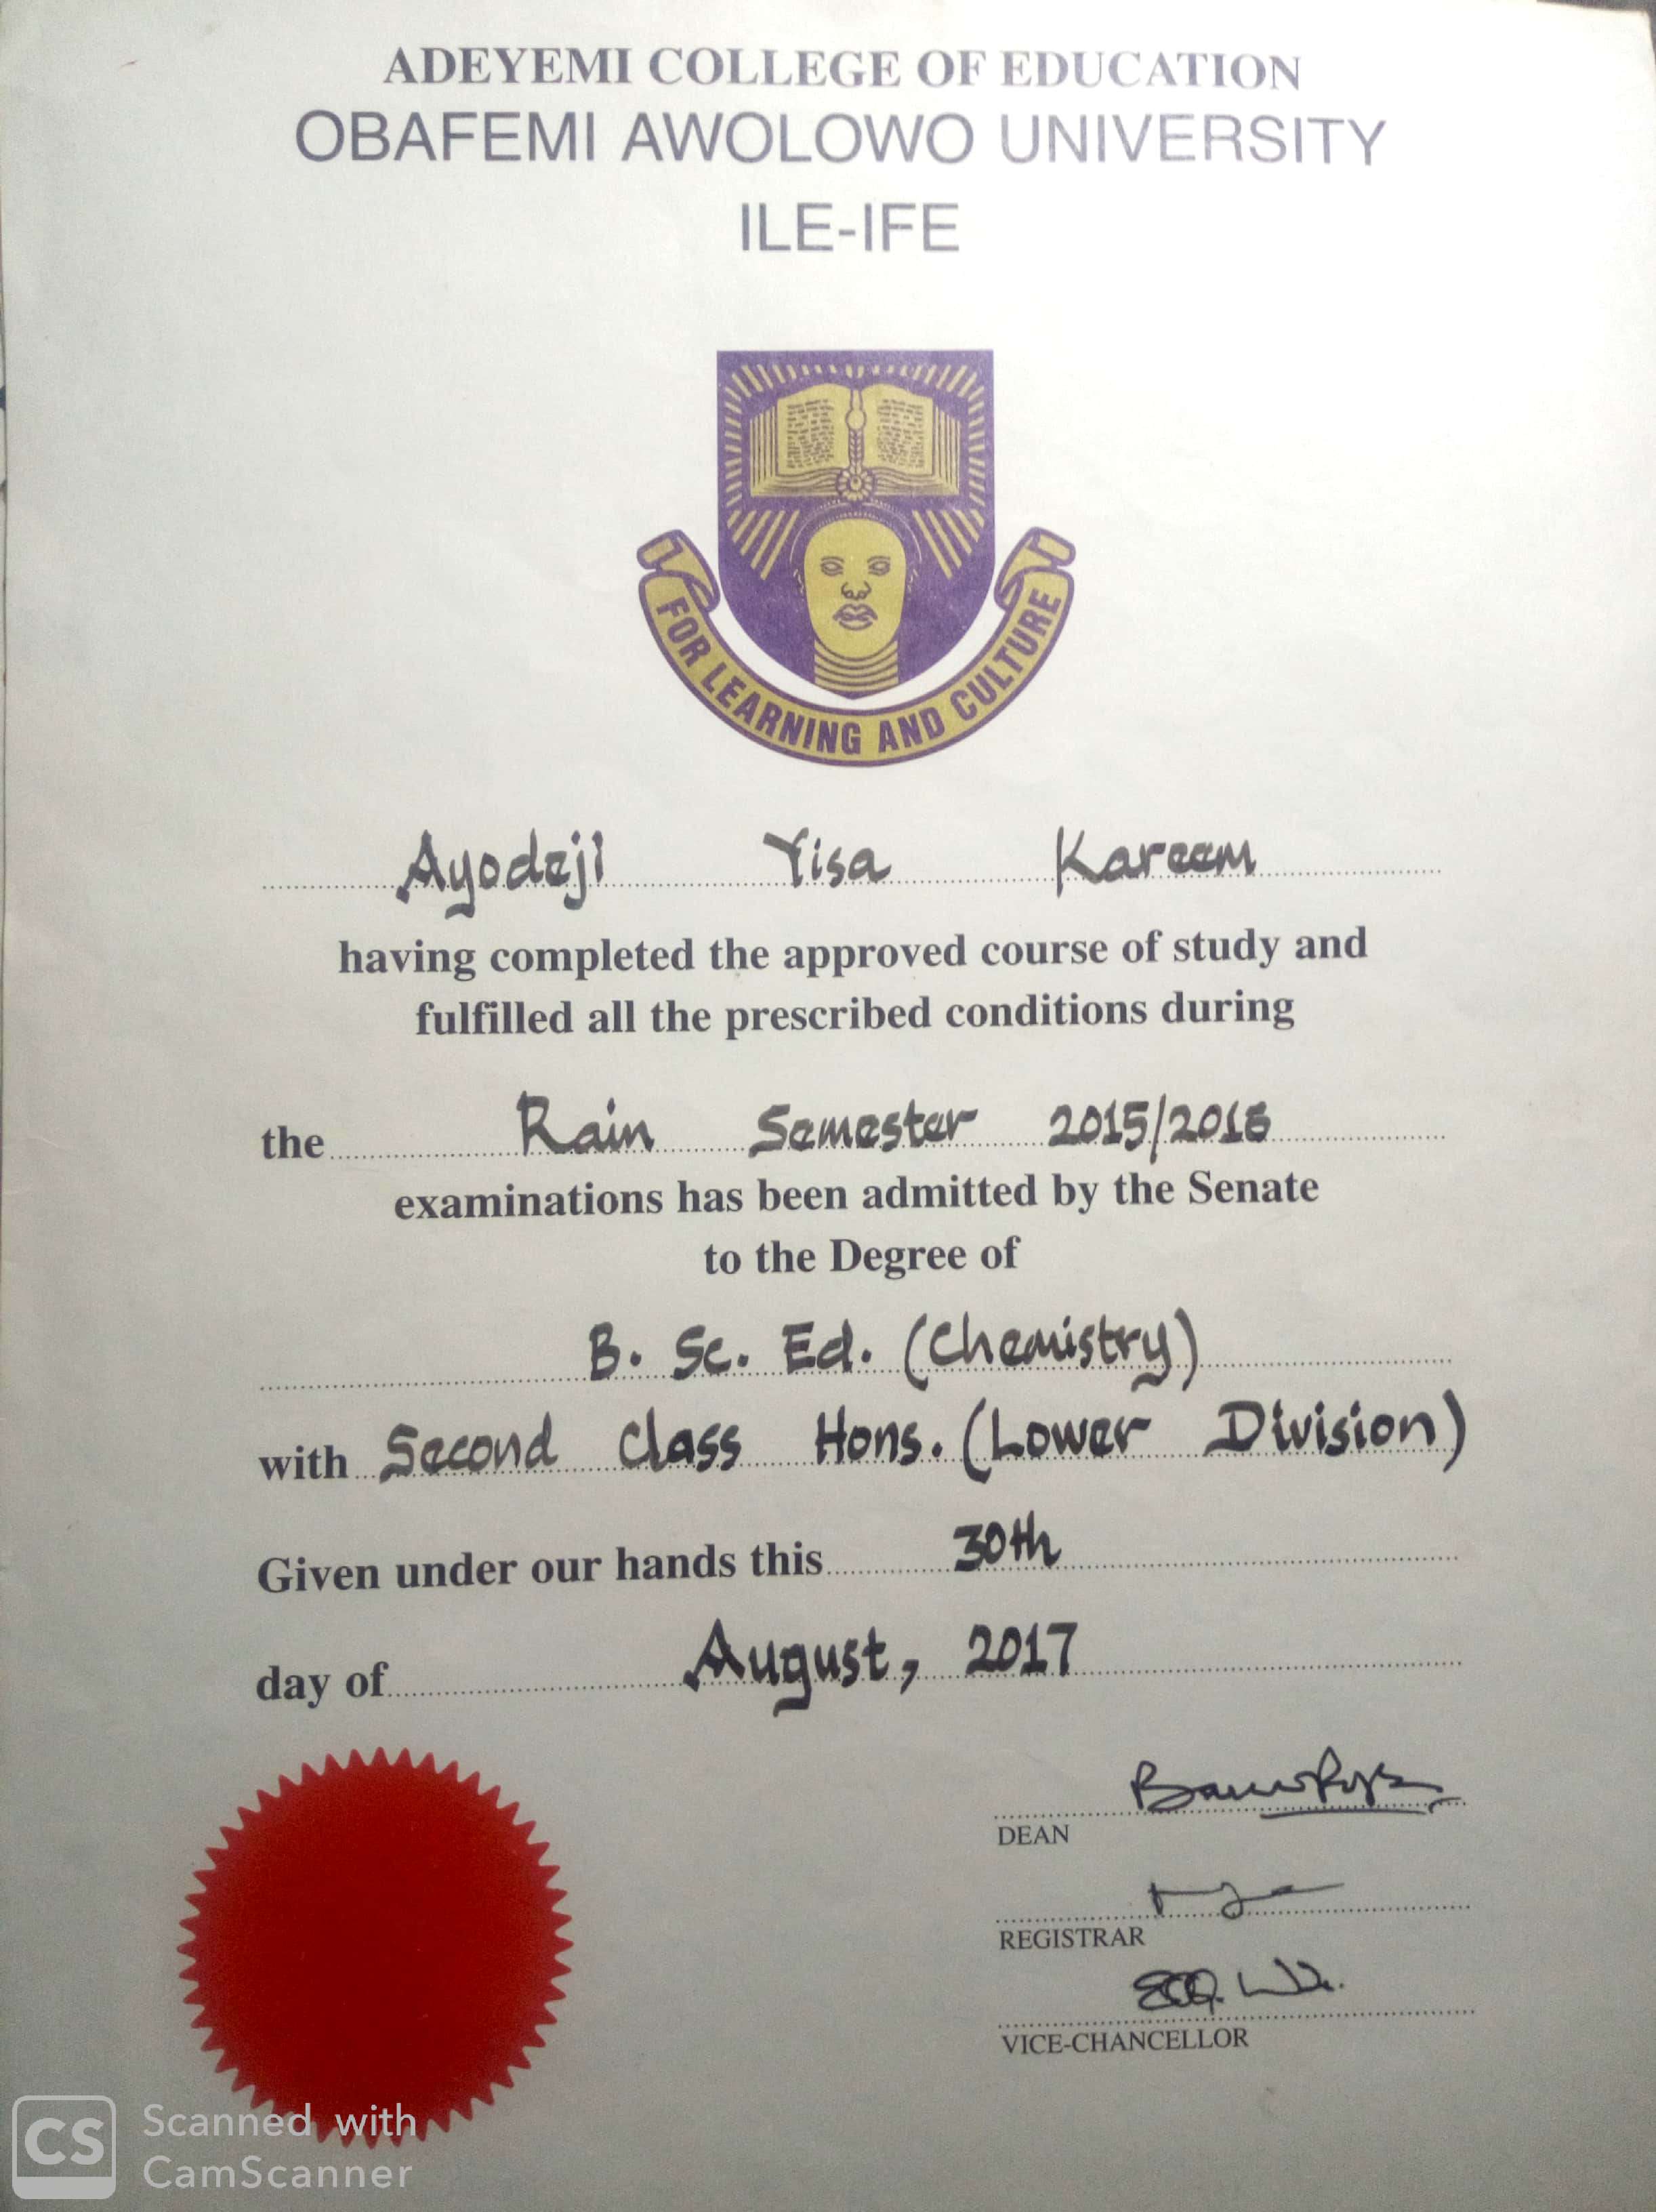 ADEYEMI COLLEGE OF EDUCATION
OBAFEMI AWOLOWO UNIVERSITY
ILE-IFE
FOR LEARNING AND CULTURE
Ayodeji Yisa Kareem
having completed the approved course of study and
fulfilled all the prescribed conditions during
the Rain Semester 2015/2016
examinations has been admitted by the Senate
to the Degree of
B. Sc. Ed. (Chemistry)
with Second Class Hons. (Lower Division)
Given under our hands this 30th
day of August, 2017
DEAN
REGISTRAR
VICE-CHANCELLOR
CS Scanned with
CamScanner